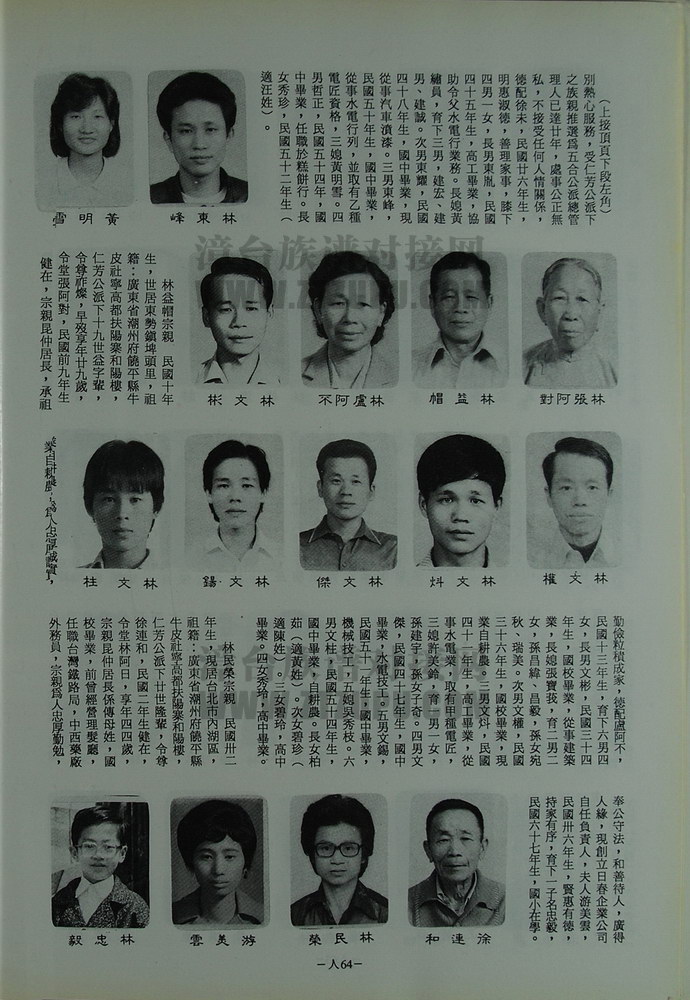 （上接頂頁下段左角）
別熱心服務，受仁芳公派下
之族親推選爲五合公派總管
理人已達廿年，處事公正無
私，不接受任何人情關係，
德配徐未，民國廿六年生，
明惠淑德，善理家事，膝下
四男一女，長男東胤，民國
四十五年生，高工畢業，協
助令父水電行業務。長媳黃
繡員，育下三男，建宏、建
男、建誠。次男東耀，民國
四十八年生，國中畢業，現
從事汽車噴漆。三男東峰，
民國五十年生，國中畢業，
從事水電行列，並取有乙種
電匠資格，三媳黃明雪。四
男哲正，民國五十四年，國
中畢業，任職於糕餅行。長
女秀珍，民國五十二年生（
適汪姓）。
林東峰
黃明雪
林張阿對
林益帽
林盧阿不
林文彬
林益帽宗親　民國十年
生，世居東勢鎮埤頭里，祖
籍：廣東省潮州府饒平縣牛
皮社寧高都扶陽寨和陽樓，
仁芳公派下十九世益字輩，
令尊祚燦，早歿享年廿九歲，
令堂張阿對，民國前九年生
健在，宗親昆仲居長，承祖
林文權
林文炓
林文傑
林文錫
林文柱
業自耕農，爲人忠厚誠實，
勤儉粒積成家，德配盧阿不，
民國十三年生，育下六男四
女，長男文彬，民國三十四
年生，國校畢業，從事建築
業，長媳張寶我，育二男二
女，孫昌緯、昌毅，孫女宛
秋、瑞美。次男文權，民國
三十六年生，國校畢業，現
業自耕農。三男文炓，民國
四十一年生，高工畢業，從
事水電業，取有甲種電匠，
三媳許美鈴，育一男一女，
孫建宇，孫女子奇。四男文
傑，民國四十七年生，國中
畢業，水電技工，五男文錫，
民國五十一年生，國中畢業，
機械技工，五媳吳秀枝。六
男文柱，民國五十四年生，
國中畢業，自耕農。長女柏
茹（適黃姓）。次女碧珍（
適陳姓）。三女碧玲，高中
畢業。四女秀玲，高中畢業。
林民榮宗親　民國卅二
年生，現居台北市內湖區，
祖籍：廣東省潮州府饒平縣
牛皮社寧高都扶陽寨和陽樓，
仁芳公派下廿世隆輩，令尊
徐連和，民國二年生健在，
令堂林阿日，享年四四歲，
宗親昆仲居長係傳母姓，國
校畢業，前曾經營理髮廳，
任職台灣鐵路局，中西藥廠
外務員，宗親爲人忠厚勤勉，
奉公守法，和善待人，廣得
人緣，現創立日春企業公司
自任負責人，夫人游美雲，
民國卅六年生，賢惠有德，
持家有序，育下一子名忠毅，
民國六十七年生，國小在學。
徐連和
林民榮
游美雲
林忠毅
－人64－
漳台族谱对接网